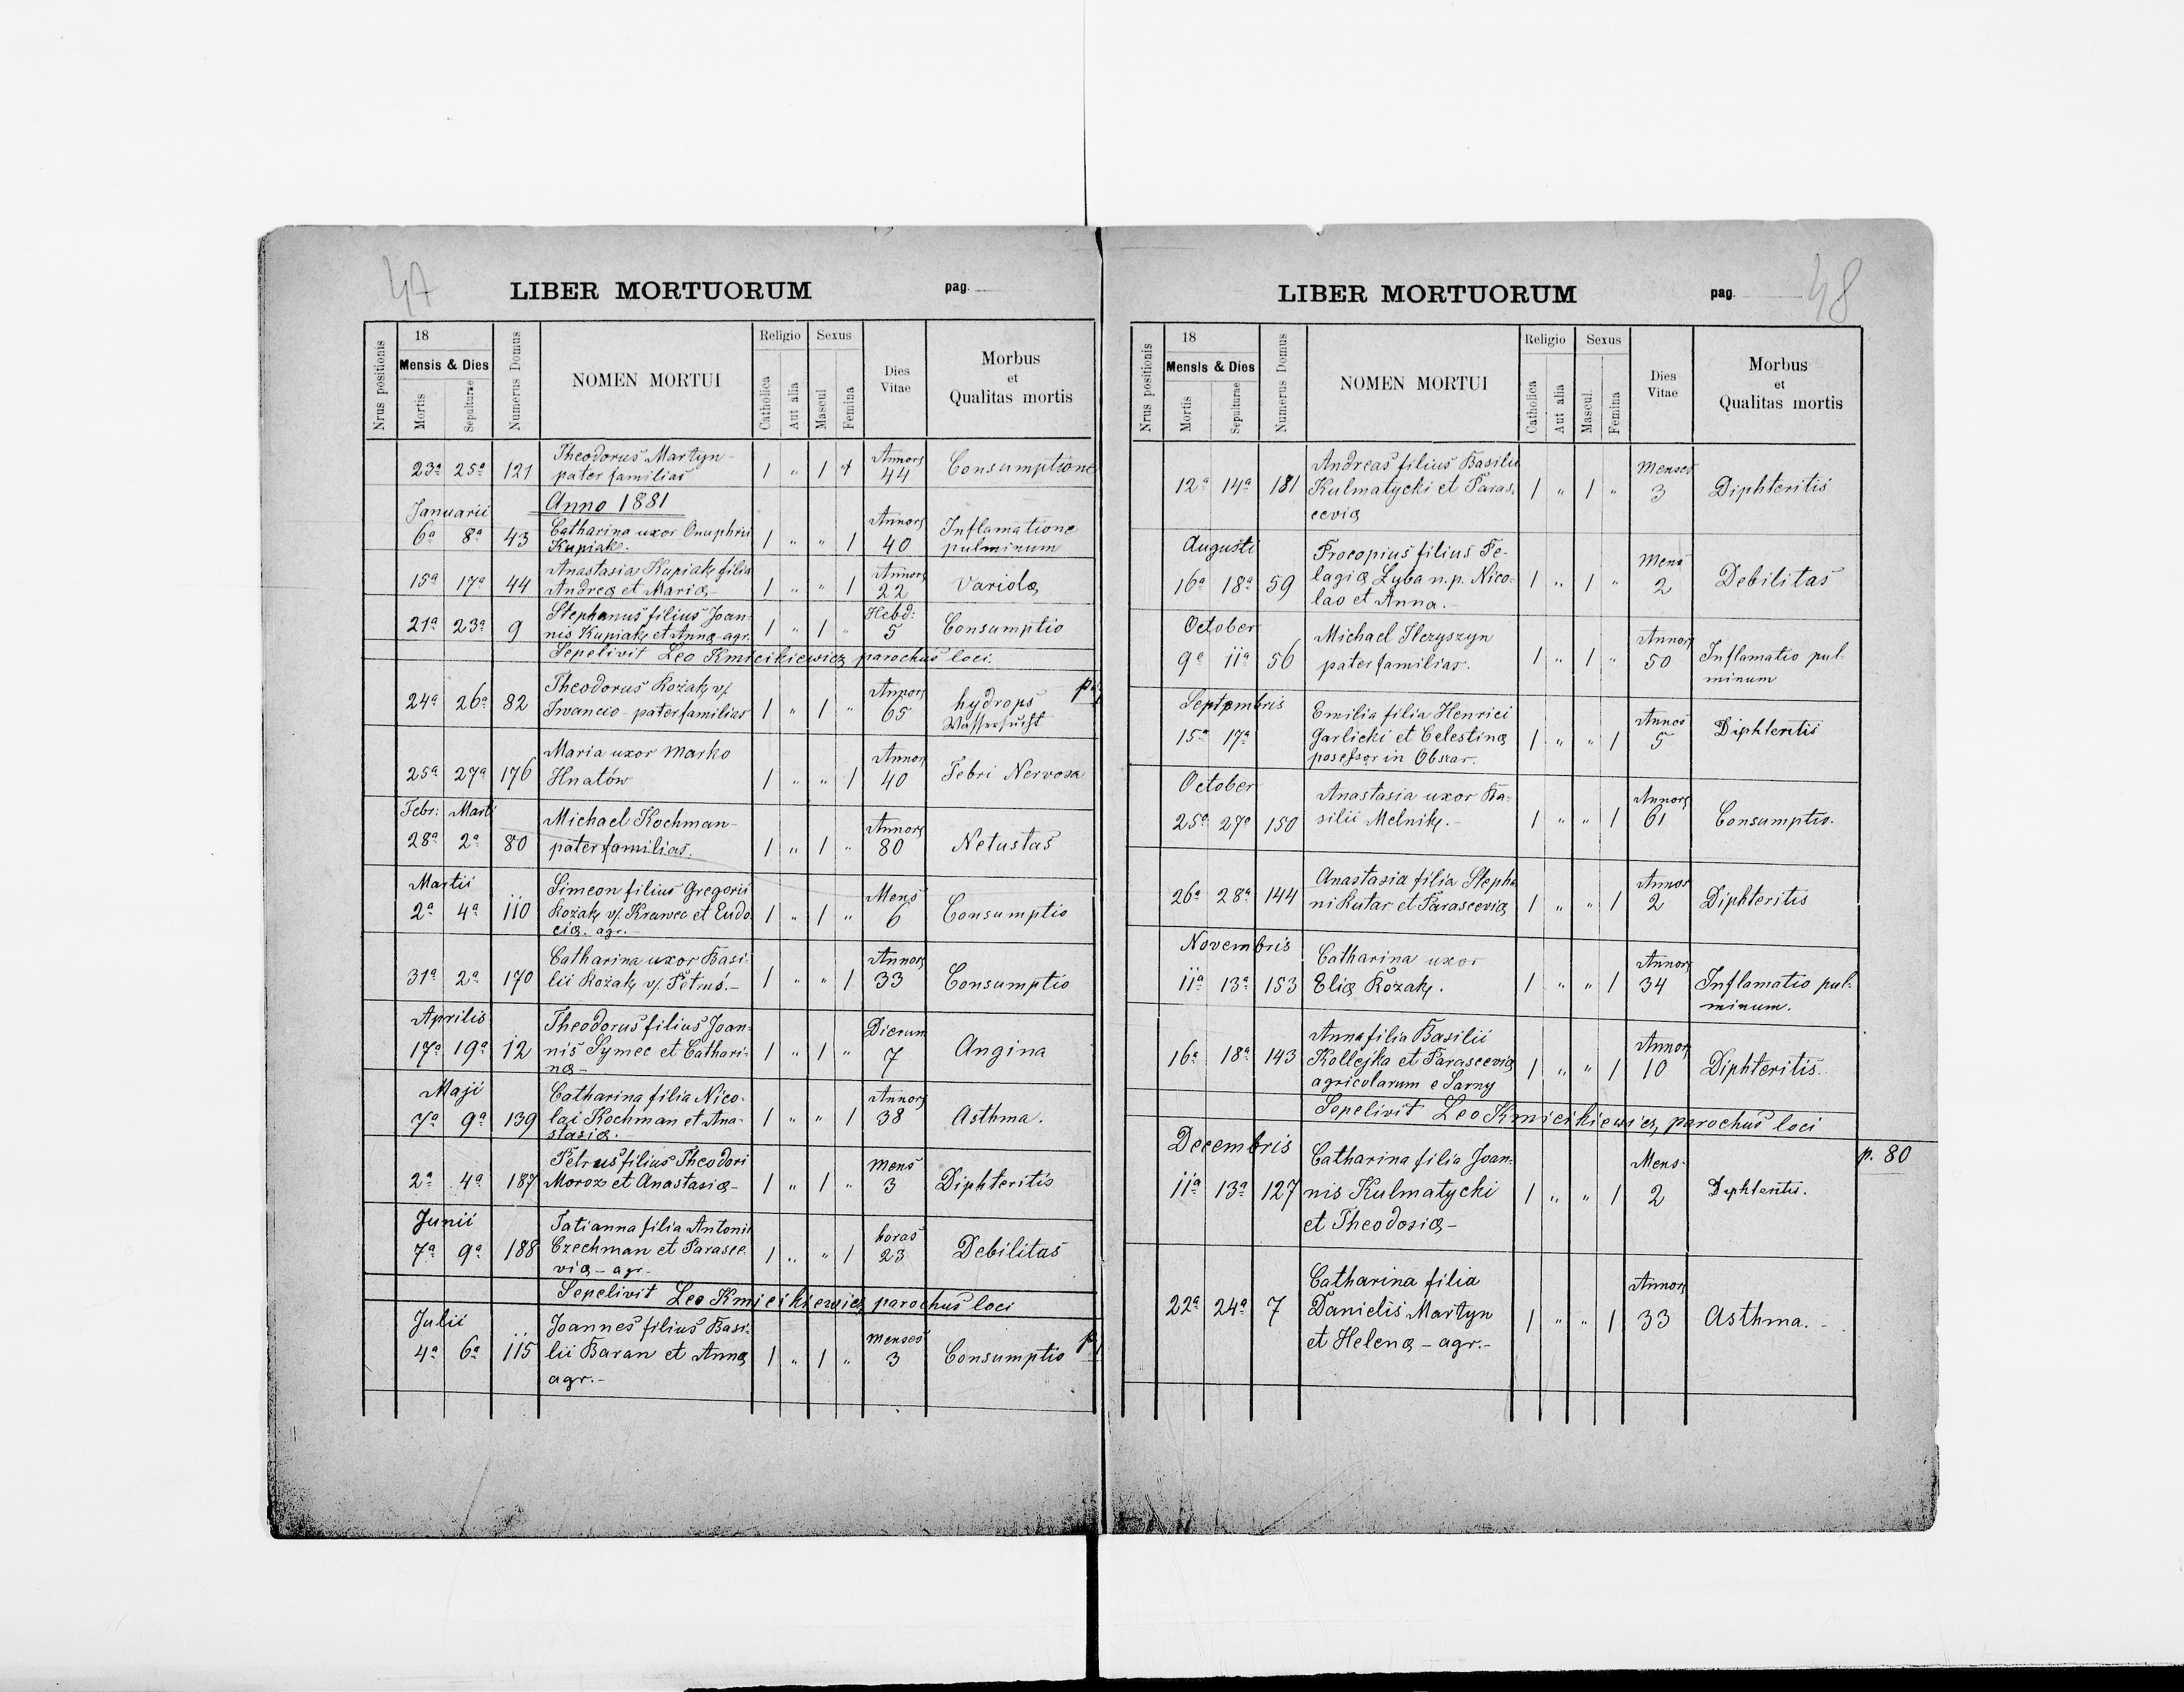 47
LIBER MORTUORUM pag.
Nrus positionis
18
Mensis & Dies
Mortis
Sepulturae
Numerus Domus
NOMEN MORTUI
Religio
Catholica
Aut alia
Sexus
Mascul
Femina
Dies
Vitae
Morbus
et
Qualitas mortis
Theodorus Martyn Annor,
23ª 25ª 121 pater familias 1 " 1 44 Consumptione
Januarii Anno 1881
Catharina uxor Onuphrii Annor, Inflamatione
6ª 8ª 43 Kupiak. 1 " " 1 40 pulminum
Anastasia Kupiak filia Annor,
15ª 17ª 44 Andreæ et Mariæ- 1 " " 1 22 Variola
Stephanus filius Joan- Hebd:
21ª 23ª 9 nis Kupiak et Annæ agr. 1 " 1 " 5 Consumptio
Sepelivit Leo Kmicikiewicz parochus loci.
Theodorus Kozak v/. Annor,
24ª 26ª 82 Iwancio - paterfamilias 1 " 1 " 65 hydrops
Wassersucht
Maria uxor Marko Annor,
25ª 27ª 176 Hnatów 1 " " 1 40 Febri Nervosa
Febr: Marti
Michael Kochman- Annor,
28ª 2ª 80 paterfamilias. 1 " 1 " 80 Netustas
Martii Simeon filius Gregorii Mens
2ª 4ª 110 Kozak v/. Krawec et Eudo 1 " 1 " 6 Consumptio
ciæ. agr.-
Catharina uxor Basi- Annor,
31ª 2ª 170 lii Kozak v/. Petruś.- 1 " " 1 33 Consumptio
Aprilis Theodorus filius Joan- Dierum
17ª 19ª 12 nis Symec et Cathari- 1 " 1 " 7 Angina
næ-
Maji Catharina filia Nico- Annor,
7ª 9ª 139 lai Kochman et Ana- 1 " " 1 38 Asthma.
stasiæ.
Petrus filius Theodori Mens
2ª 4ª 187 Moroz et Anastasiæ- 1 " 1 " 3 Diphteritis
Junii Tatianna filia Antonii horas
7ª 9ª 188 Czechman et Parasce- 1 " " 1 23 Debilitas
viæ - agr-
Sepelivit Leo Kmicikiewicz parochus loci
Julii Joannes filius Basi- Menses
4ª 6ª 115 lii Baran et Annæ 1 " 1 " 3 Consumptio
agr.-
48
LIBER MORTUORUM pag.
Nrus positionis
18
Mensis & Dies
Mortis
Sepulturae
Numerus Domus
NOMEN MORTUI
Religio
Catholica
Aut alia
Sexus
Mascul.
Femina
Dies
Vitae
Morbus
et
Qualitas mortis
Andreas filius Basilii Menses
12ª 14ª 181 Kulmatycki et Paras- 1 " 1 " 3 Diphteritis
ceviæ
Augusti Procopius filius Pe- Mens
16ª 18ª 59 lagiæ Lyba n.p. Nico- 1 " 1 " 2 Debilitas
lao et Anna.-
October Michael Ilczyszyn Annor,
9ª 11ª 56 paterfamilias. 1 " 1 " 50 Inflamatio pul-
minum
Septembris Emilia filia Henrici Annos
15ª 17ª Garlicki et Celestinæ 1 " " 1 5 Diphteritis
possessor in Obszar.
October Anastasia uxor Ba- Annor,
25ª 27ª 150 silii Melnik.- 1 " " 1 61 Consumptio.
Anastasia filia Stepha Annor
26ª 28ª 144 ni Kutar et Parasceviæ 1 " " 1 2 Diphteritis
Novembris Catharina uxor Annor,
11ª 13ª 153 Eliæ Kozak. 1 " " 1 34 Inflamatio pul-
minum.
Anna filia Basilii Annor,
16ª 18ª 143 Kollejka et Parasceviæ 1 " " 1 10 Diphteritis.
agricolarum e Sarny
Sepelivit Leo Kmicikiewicz, parochus loci
Decembris Catharina filia Joan- Mens. p. 80
11ª 13ª 127 nis Kulmatycki 1 " " 1 2 Diphteritis.
et Theodosiæ-
Catharina filia Annor,
22ª 24ª 7 Danielis Martyn 1 " " 1 33 Asthma.-
et Helenæ - agr.-